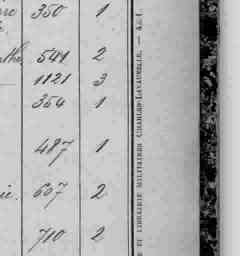 350 1
541 2
1121 3
354 1
487 1
ie. 607 2
710 2
ET LIBRAIRIE MILITAIRES CHARLES-LAVAUZELLE. —